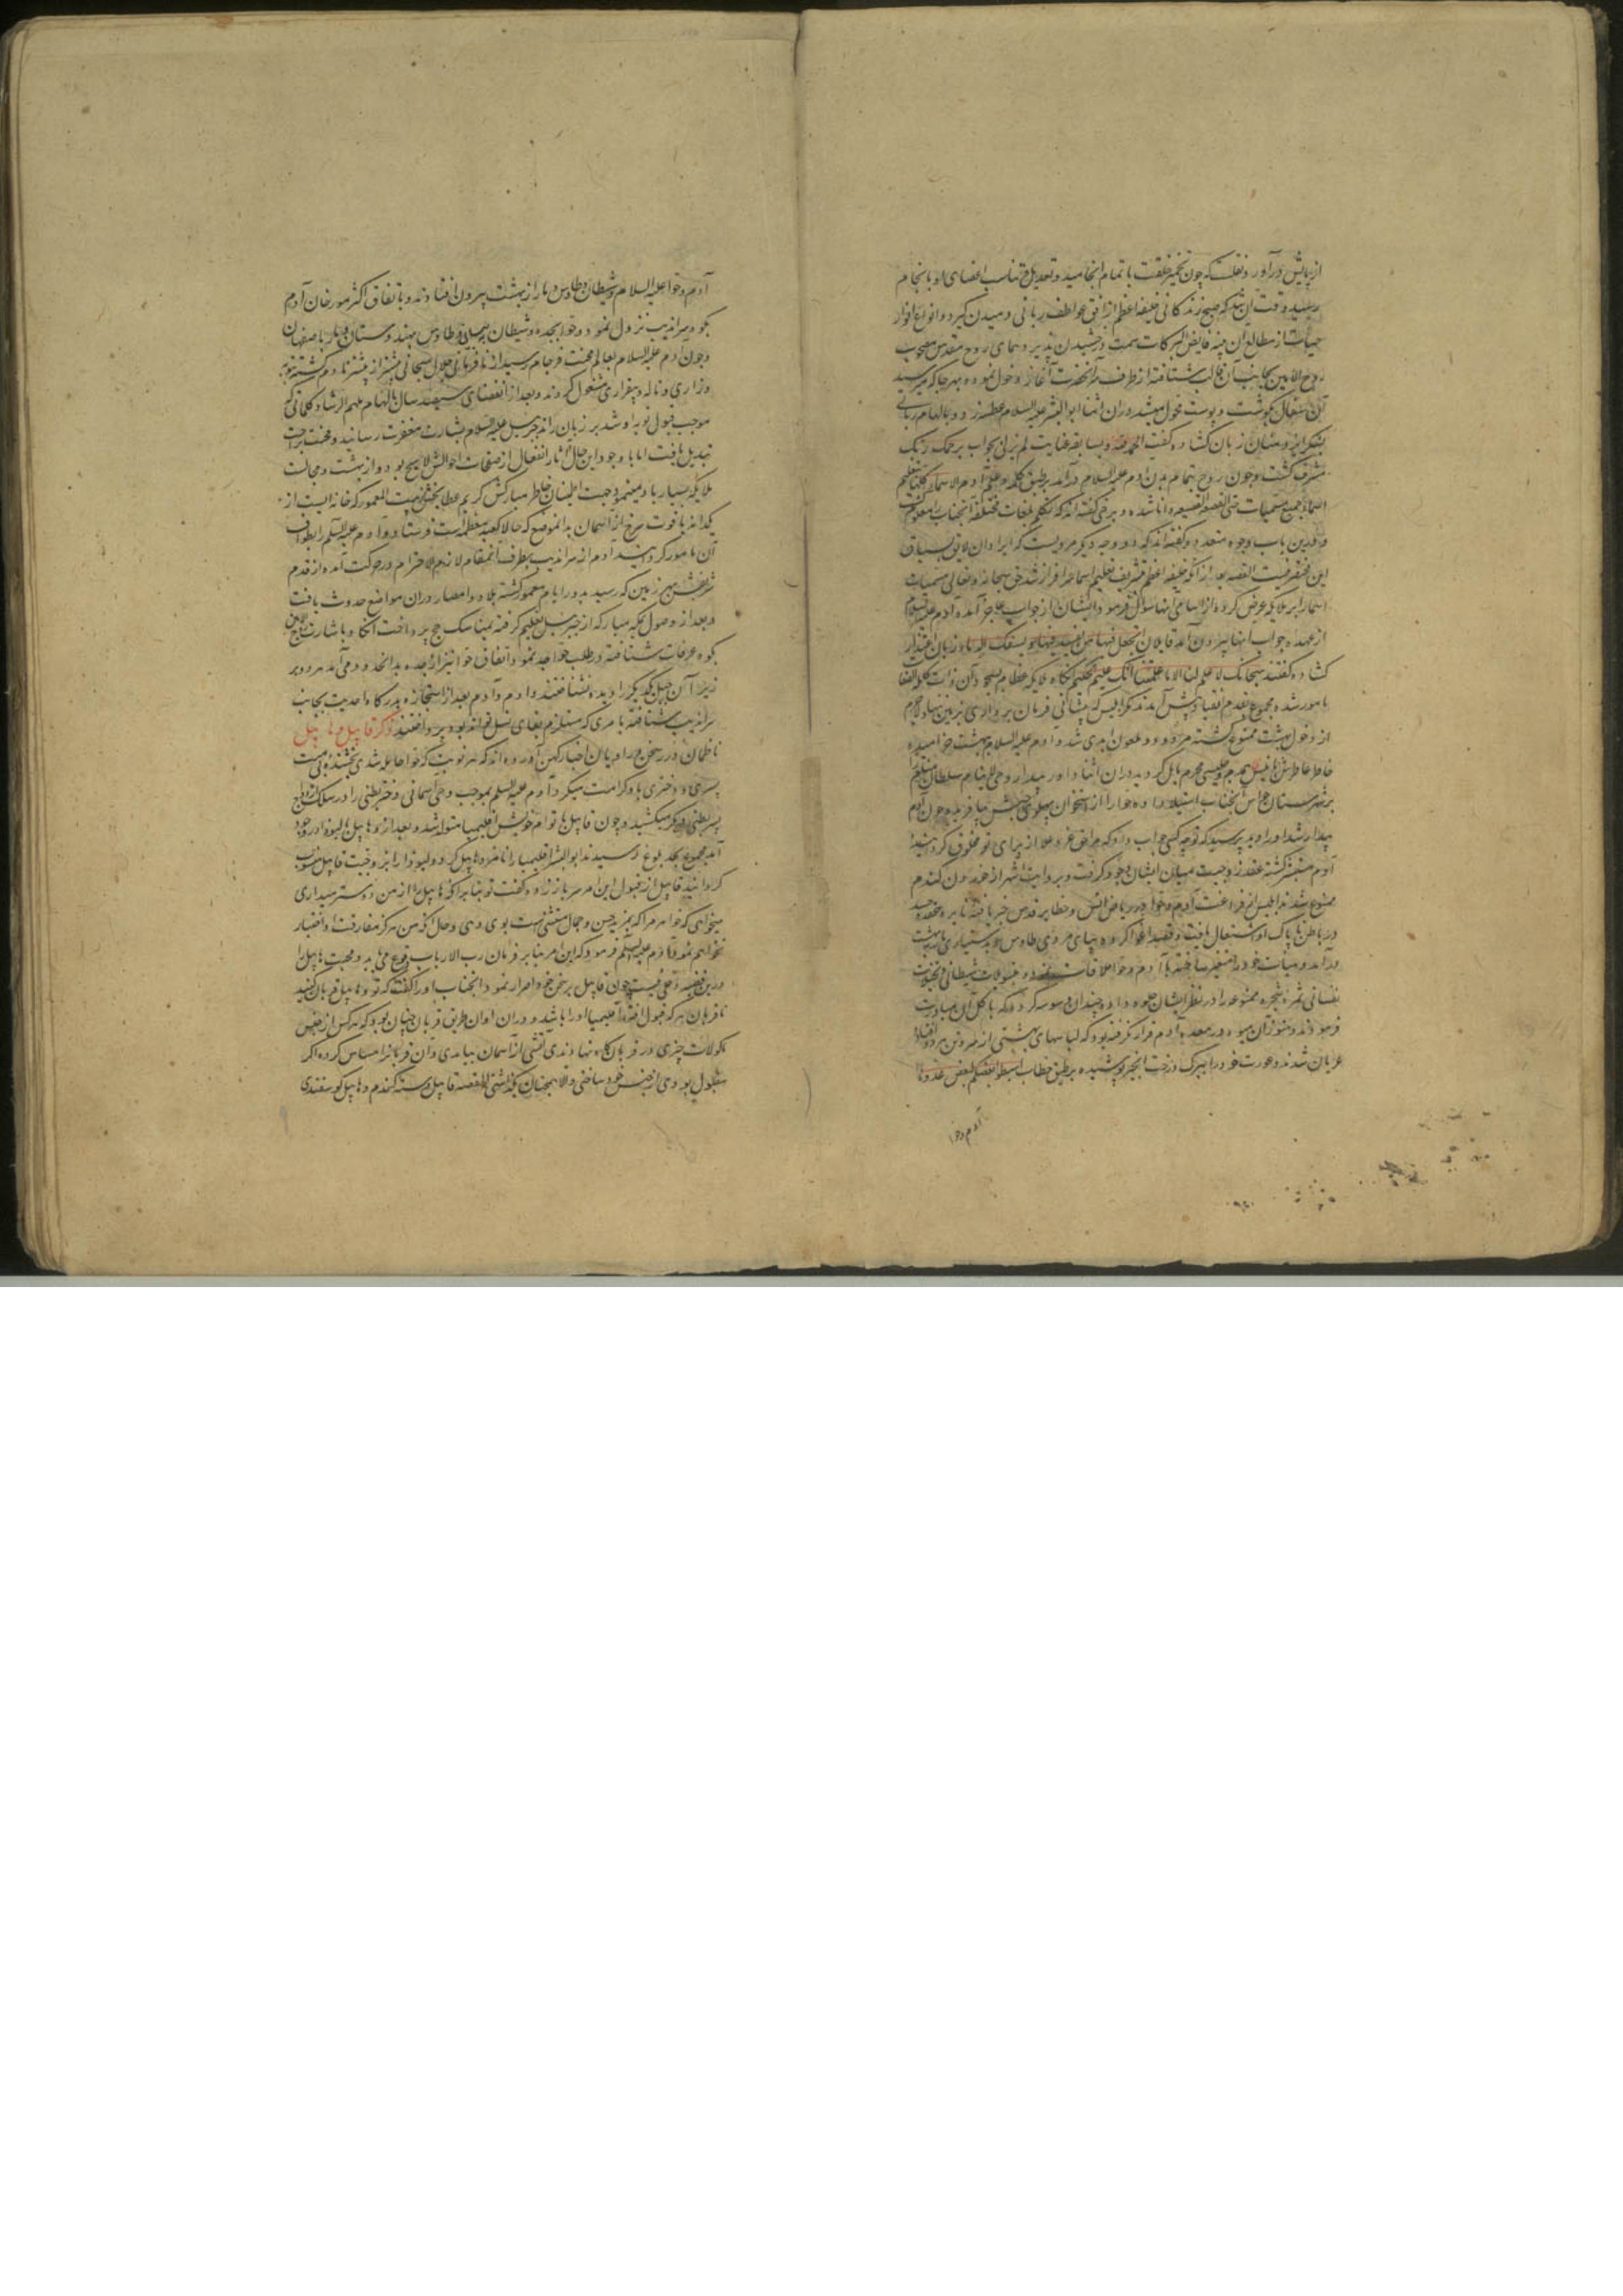 از پایش درآورد نقلست که چون تخمیر خلقت باتمام انجامید و تعدیل و تناسب اعضای او بانجام
رسید وقت آن شد که صبح زندگانی خلیفه اعظم از افق عواطف ربانی دمیدن گیرد و انواع انوار
حیات از مطالع آن فایض البرکات سمت درخشیدن پذیرد همای روح مقدس مصحوب
روح الامین بجانب آن قالب شتافته از طرف سر آنحضرت آغاز دخول نموده بهر جا که میرسید
آن سفال بگوشت و پوست محول میشد در آن اثنا ابو البشر علیه السلام عطسه زد و بالهام ربانی
بشکر ایزد منان زبان گشاده گفت الحمد لله و بسابقه عنایت لم یزلی بجواب یرحمک ربک
مشرف گشت و چون روح بتمام بدن آدم علیه السلام درآمد بر طبق کلمه و علم آدم الاسماء کلها بتعلیم
اسماء جمیع مسمیات حتی القصعه و القصیعه دانا شده و برخی گفته اند که بتکلم بلغات مختلفه آنجناب را معلوم گشت
و درین باب وجوه متعدده گفته اند که دو وجه دیگر مرویست که ایراد آن لایق بسیاق
این مختصر نیست القصه بعد از آنکه خلیفه اعظم بتشریف تعلیم اسما سرافراز شد حق سبحانه و تعالی مسمیات
اسما را بر ملایکه عرض کرده از اسامی آنها سؤال فرمود و ایشان از جواب عاجز آمده آدم علیه السلام
از عهده جواب آنها بیرون آمد قایلان اتجعل فیها من یفسد فیها و یسفک الدماء زبان اعتذار
گشاده گفتند سبحانک لا علم لنا الا ما علمتنا انک انت العلیم الحکیم آنگاه ملایکه عظام بسجده آن ذات
مامور شده مجموع بقدم انقیاد پیش آمدند مگر ابلیس که پیشانی فرمان برداری بر زمین ننهاد لاجرم
از دخول بهشت ممنوع گشته مردود و ملعون ابدی شد و آدم علیه السلام ببهشت خرامیده
خاطر عاطرش بانیس همدم و جلیسی محرم مایل گردید در آن اثنا
بر شهرستان حواس آنجناب استیلا داده حوا را از استخوان پهلوی چپش بیافرید و چون آدم
بیدار شد او را دید پرسید که تو چه کسی جواب داد که حق عز و علا از برای تو مخلوق گردانید
آدم مستبشر گشته عقد زوجیت میان ایشان وجود گرفت و بروایت اشهر از خوردن گندم
ممنوع شدند ابلیس از فراغت آدم و حوا در ریاض انس و حظایر قدس خبر یافته نایره حقد و حسد
در باطن ناپاک او اشتعال یافت و قصد اغوا کرده بپایمردی طاوس و بدستیاری مار ببهشت
درآمد و هیأت خود را متغیر ساخته با آدم و حوا ملاقات نموده بتسویلات شیطانی و تخیلات
نفسانی ثمره شجره ممنوعه را در نظر ایشان جلوه داد و چندان وسوسه کرد که باکل آن مبادرت
فرمودند و هنوز آن میوه در معده آدم قرار نگرفته بود که لباسهای بهشتی از بدن هر دو افتاد
عریان شدند و عورت خود را ببرگ درخت انجیر پوشیده بر طبق خطاب اهبطوا بعضکم لبعض عدو تا
آدم و حوا
آدم و حوا علیه السلام و شیطان و طاوس و مار از بهشت بیرون افتادند و باتفاق اکثر مورخان آدم
بکوه سراندیب نزول نمود و حوا بجده و شیطان و طاوس بهندوستان و مار باصفهان
و چون آدم علیه السلام بعالم محنت فرجام رسید از نافرمانی جلال سبحانی بیشتر از پیشتر نادم گشته بتوبه
و زاری و ناله و بیقراری مشغول گردند و بعد از انقضای سیصد سال بالهام ملهم الرشاد کلماتی که
موجب قبول توبه او شد بر زبان راند جبرئیل علیه السلام بشارت مغفرت رسانید و محنت براحت
تبدیل یافت اما با وجود این حال آثار انفعال از صفحات احوالش لایح بود و از بهشت و مجالست
ملایکه بسیار یاد مینمود جهت اطمینان خاطر مبارکش کریم عطا بخش بیت المعمور که خانه ایست از
یکدانه یاقوت سرخ از آسمان بدانموضع که حالا کعبه معظمه است فرستاد و آدم علیه السلام را بطواف
آن مامور گردانید آدم از سراندیب بطرف آنمقام لازم الاحترام در حرکت آمده از قدم
شریفش بهر زمین که رسید بمرور ایام معمور گشته بلاد و امصار در آن مواضع حدوث یافت
و بعد از وصول بمکه مبارکه از جبرئیل تعلیم گرفته بمناسک حج پرداخت آنگاه باشارت
بکوه عرفات شتافته در طلب حوا جد نمود و اتفاقا حوا نیز از جده بدانحدود می آمد هر دو بر
زبر آن جبل یکدیگر را دیده بشناختند و آدم بعد از استجازه بدرگاه احدیت بجانب
سراندیب شتافته بامری که مستلزم بقای نسل تواند بود پرداختند ذکر قابیل و هابیل
ناظمان درر سخن و راویان اخبار کهن آورده اند که هر نوبت که حوا حامله شدی بخشنده بی منت
پسری و دختری باو کرامت میکرد و آدم علیه السلام بموجب وحی آسمانی دختر بطنی را در سلک ازدواج
پسر بطنی دیگر میکشید و چون قابیل با توام خویش اقلیمیا متولد شد و بعد از او هابیل با لیوذا در وجود
آمد مجموع بحد بلوغ رسیدند ابو البشر اقلیمیا را نامزد هابیل کرد و لیوذا را بزوجیت قابیل منسوب
گردانید قابیل از قبول این امر سر باز زده و گفت تو بنابر آنکه هابیل را از من دوستر میداری
میخواهی که خواهر مرا که بمزید حسن و جمال مستثنی است بوی دهی و حال آنکه من هرگز مفارقت او اختیار
نخواهم نمود آدم علیه السلام فرمود که این امر بنابر فرمان رب الارباب وقوع می یابد و محبت هابیل را
درین قضیه دخلی نیست چون قابیل بر سخن خود اصرار نمود آنجناب او را گفت که تو و هابیل قربان کنید
تا قربان هر که قبول افتد اقلیمیا او را باشد و در آن اوان طریق قربان چنان بود که هر کس از جنس
ماکولات چیزی در قربانگاه نهادندی آتشی از آسمان بیامدی و آن قربانرا مساس کرده اگر
مقبول بودی از جنس خود ساختی و الا همچنان بگذاشتی القصه قابیل دسته گندم و هابیل گوسفندی